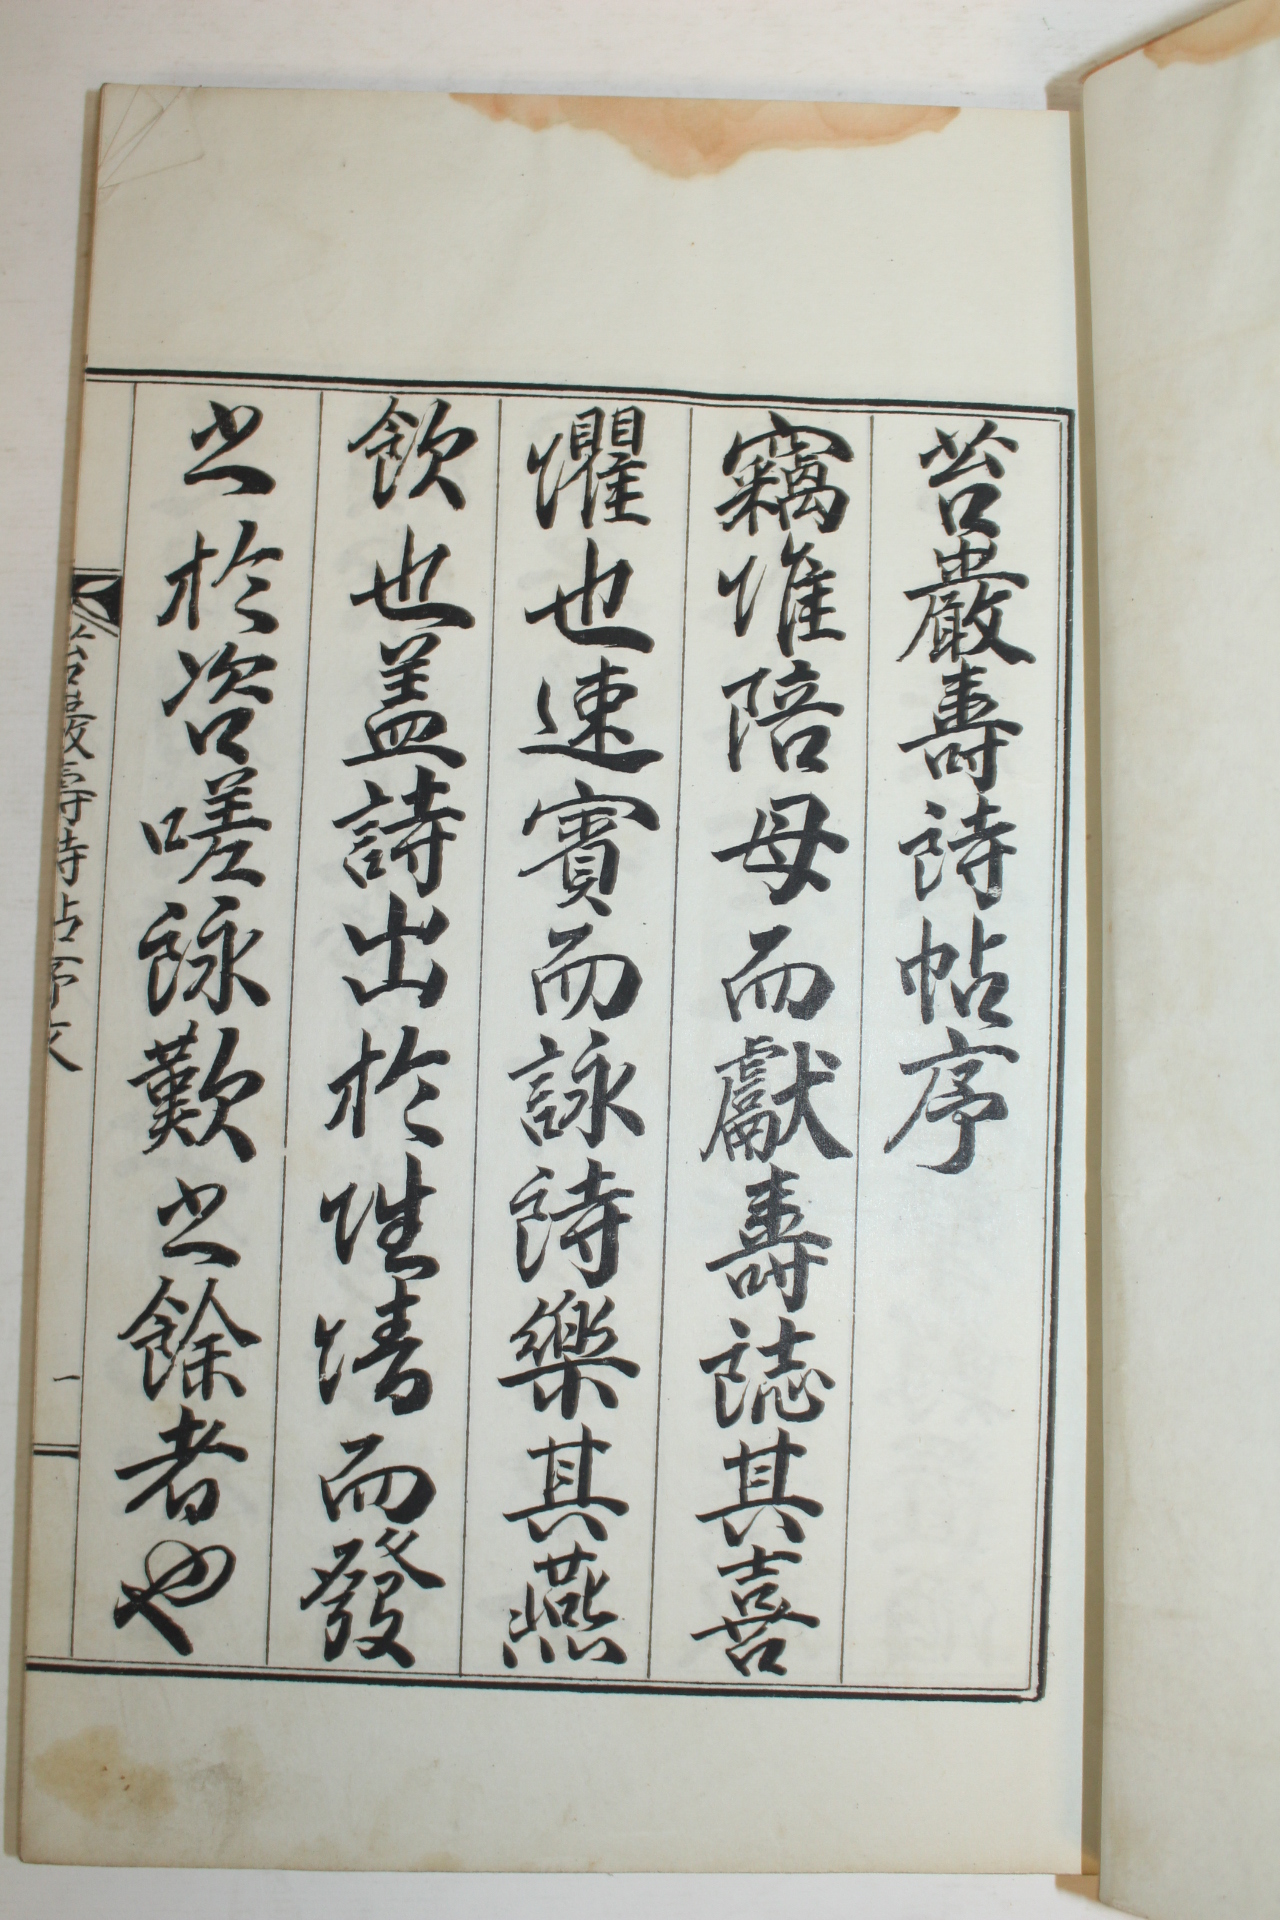 苔巖壽詩帖序
竊惟陪母而獻壽誌其喜
懼也速賓而詠詩樂其燕
飮也盖詩出於性情而發
之於咨嗟詠歎之餘者也
苔巖壽詩帖序文 一